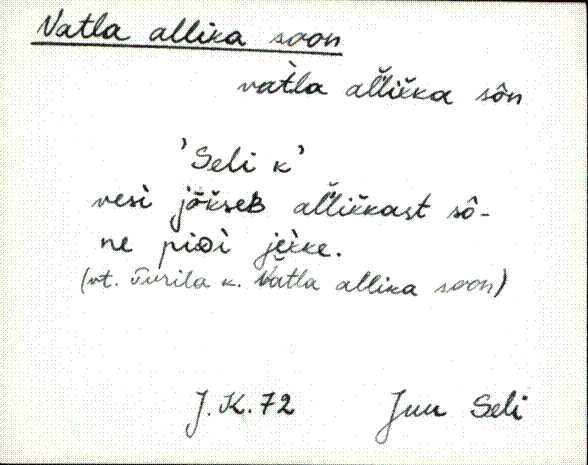 Vatla allika soon
vat̀la al̆l̆ik̆ka sôn
'Seli k'
vesì jo̬k̆seʙ al̆l̆ik̆kast sô-
ne piᴅì jek̀ke.
(vt. Turila k. Vatla allika soon)
J.K.72 Juu Seli